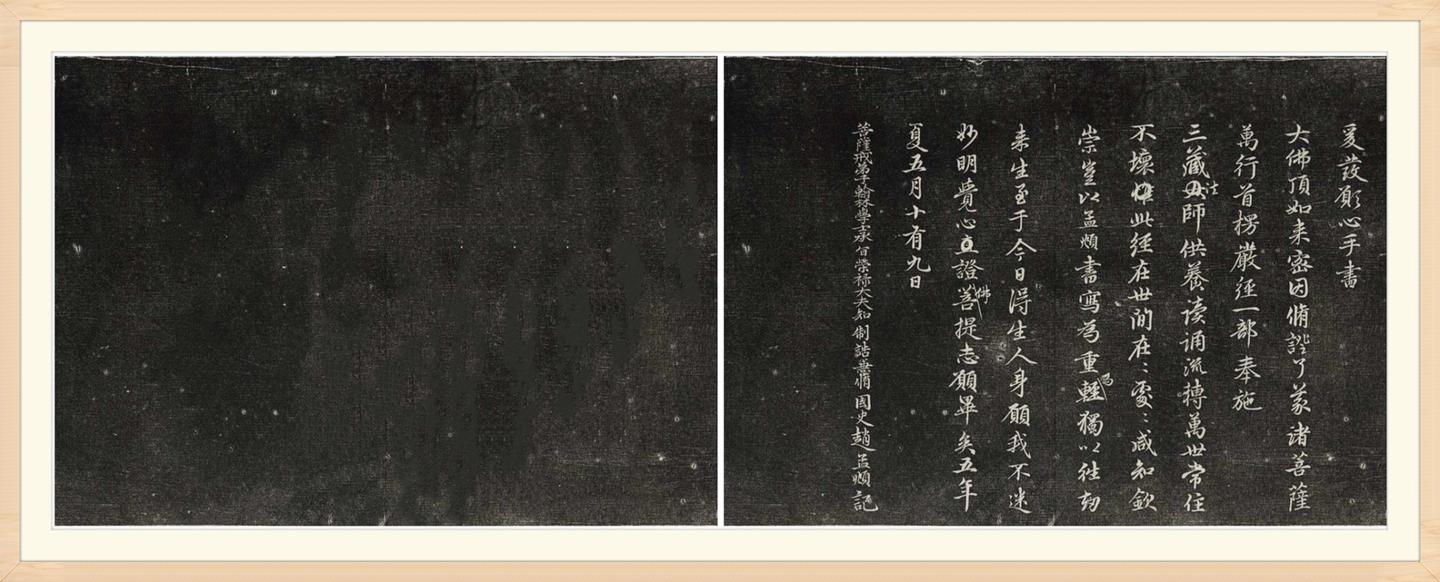 爰發願心手書
大佛頂如来密因脩證了義諸菩薩
萬行首楞嚴經一部奉施
三藏法師供養讀誦流摶萬世常住
不壞惟此經在世間在:處:咸知欽
崇豈以孟頫書寫為重輕為獨以往劫
来生至于今日淂生人身願我不迷
妙明覺心直證佛菩提志願畢矣五年
夏五月十有九日
菩薩戒弟子翰林學士承旨榮祿大夫知制誥兼脩國史趙孟頫記